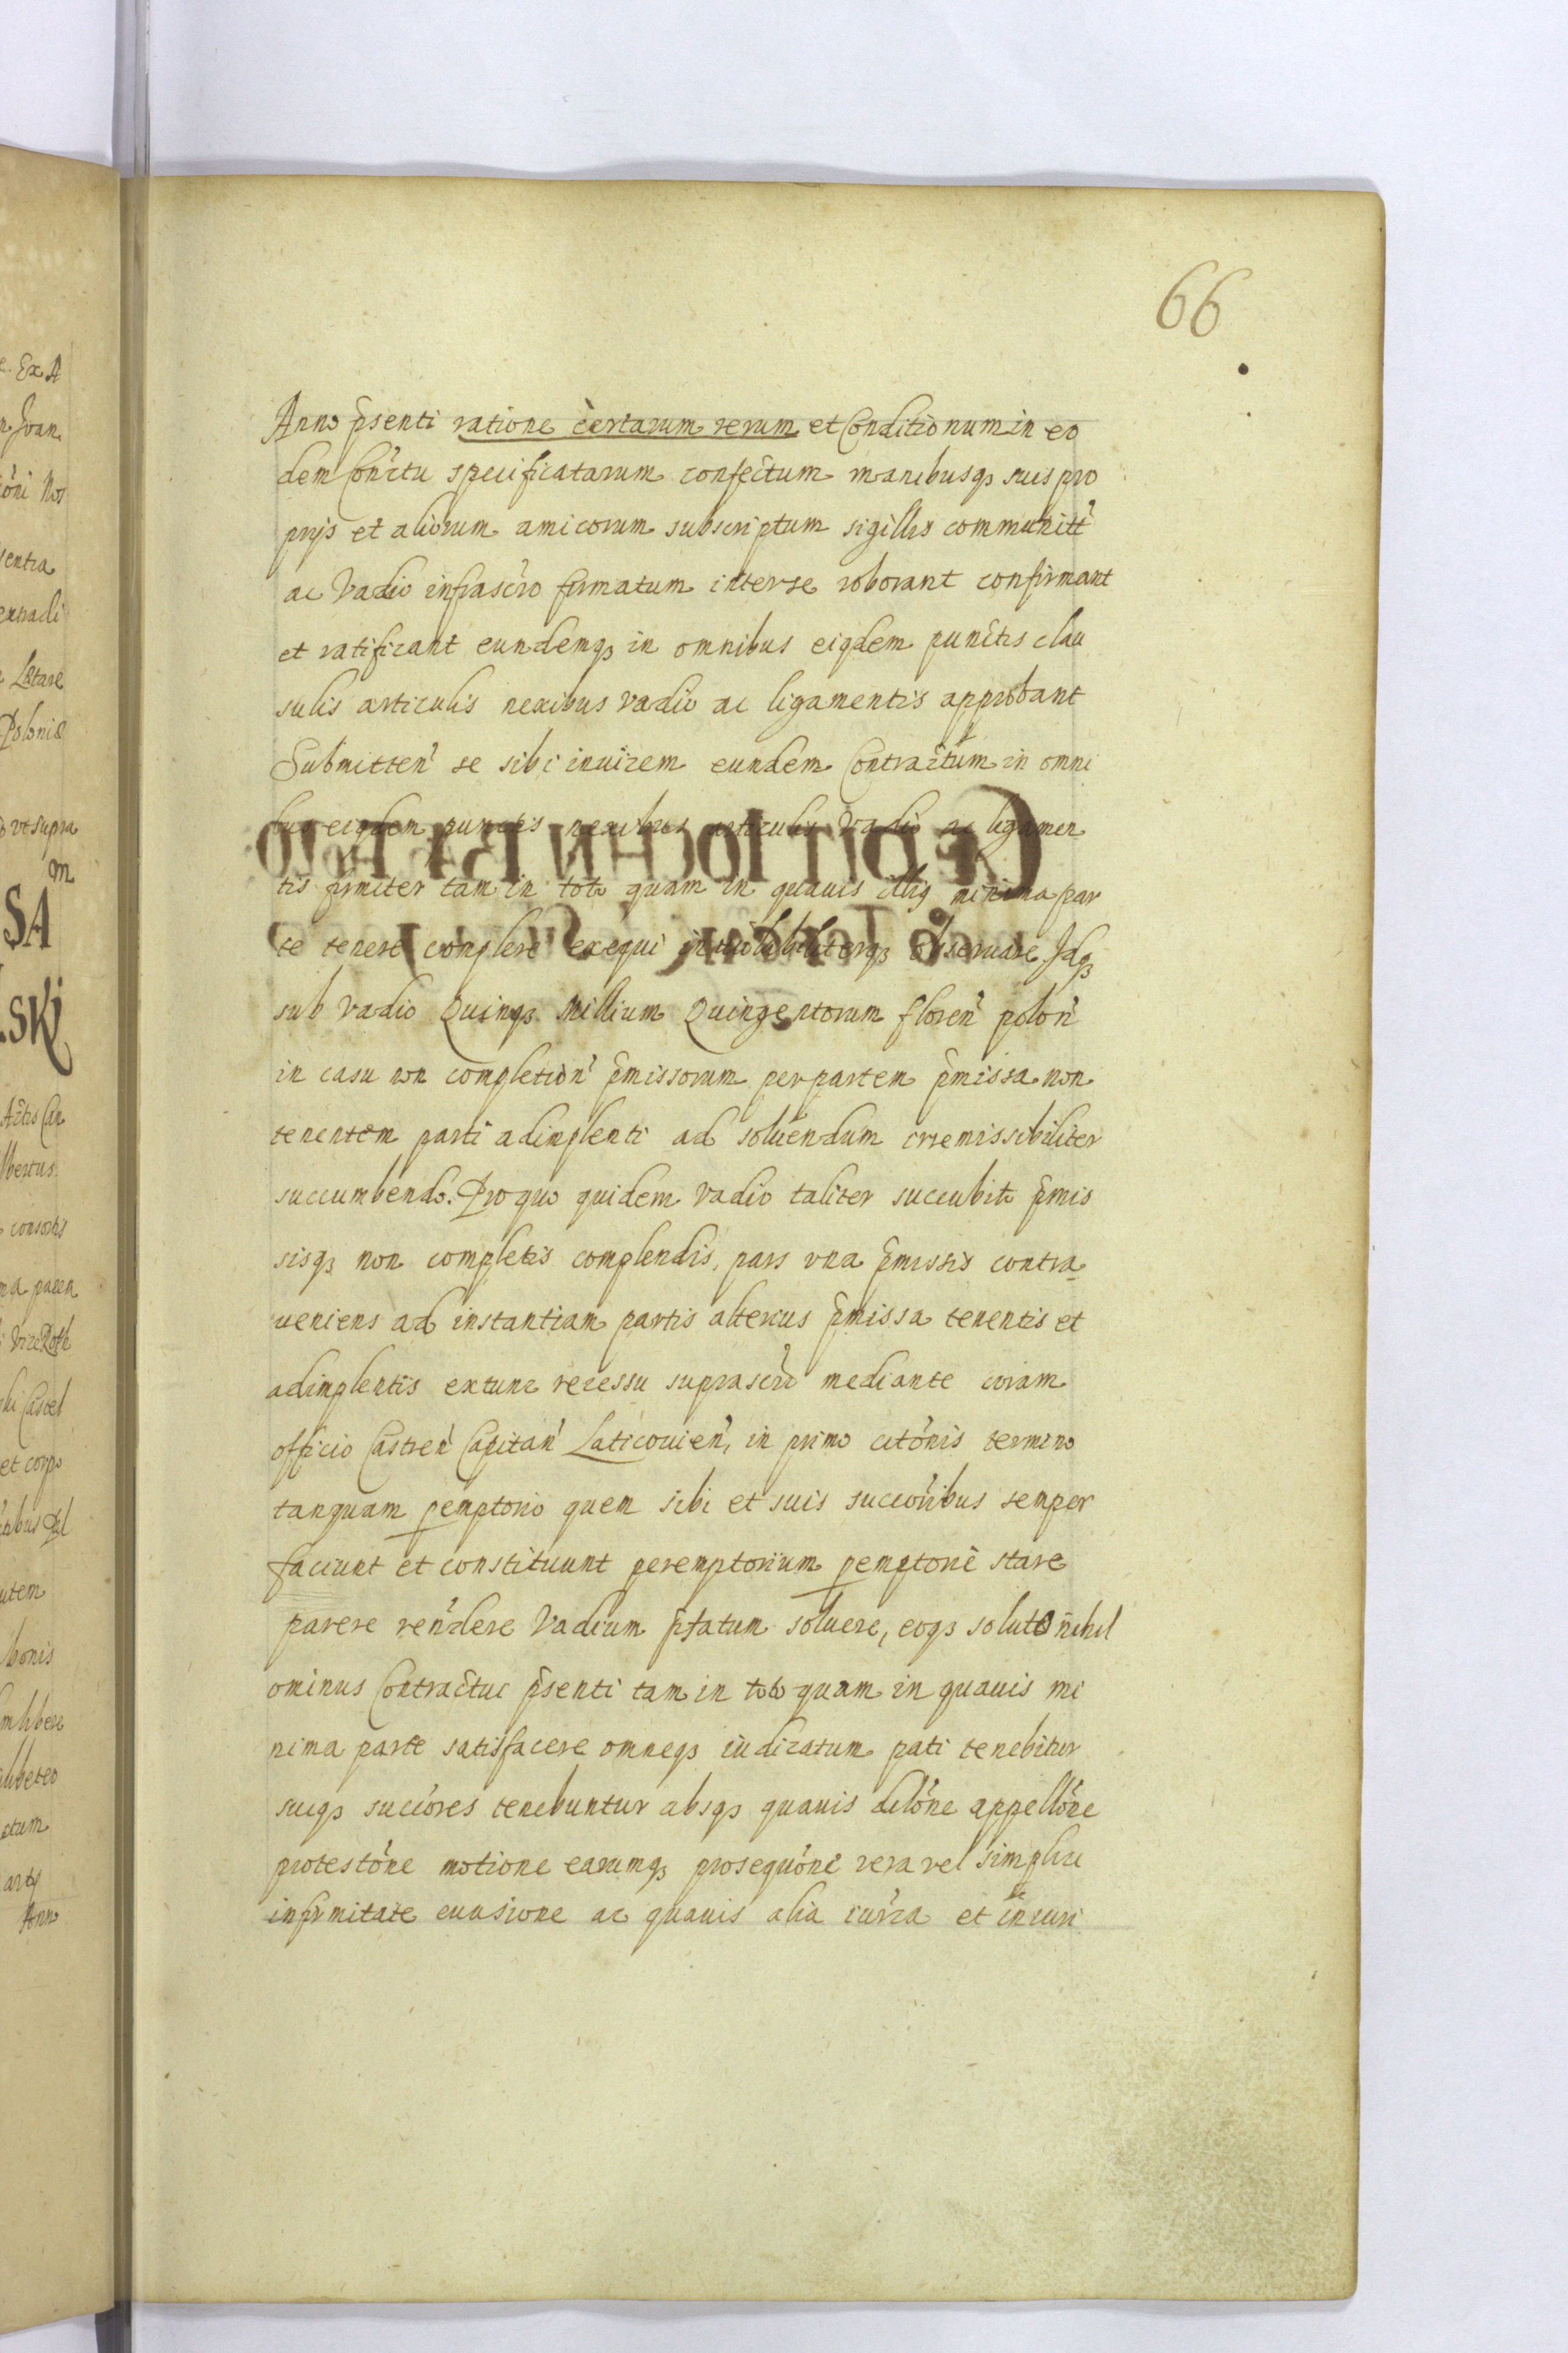 66
Anno p̄senti ratione certarum rerum et Conditionum in eo
dem Conr̃tu specificatarum confectum manibusqꝫ suis pro
prijs et aliorum amicorum subscriptum sigillis communitt̃
ac Vadio infrascr̃o firmatum inter se roborant confirmant
et ratificant eundemqꝫ in omnibus eiqdem punctis clau
sulis articulis nexibus vadio ac ligamentis approbant
Submitten̄ se sibi inuicem eundem Contractum in omni
bus eiqdem punctis nexibus articulis Vadio ac ligamen
tis firmiter tam in toto quam in quauis illiq minima par
te tenere complere exequi inuiolabiliterqꝫ obseruare Idqꝫ
sub Vadio Quinqꝫ Millium Quingentorum floren̄ polon̄
in casu non completion̄ p̄missorum per partem p̄missa non
tenentem parti adimplenti ad soluendum irremissibiliter
succumbendo. Pro quo quidem Vadio taliter succubito p̄mis
sisqꝫ non completis complendis, pars vna p̄missis contra
ueniens ad instantiam partis alterius p̄missa tenentis et
adimplentis extunc recessu suprascr̃o mediante coram
officio Castren̄ Capitan̄ Laticouien̄, in primo citōnis termino
tanquam pemptorio quem sibi et suis succōribus semper
faciunt et constituunt peremptorium pemptorie stare
parere ren̄dere Vadium p̄fatum soluere, eoqꝫ soluto nihil
ominus Contractui p̄senti tam in toto quam in quauis mi
nima parte satisfacere omneqꝫ iudicatum pati tenebitur
suiqꝫ succōres tenebuntur absqꝫ quauis dilōne appellōne
protestōne motione earumqꝫ prosequōne vera vel simplici
infirmitate euasione ac quauis alia iur̃ca et in iuri